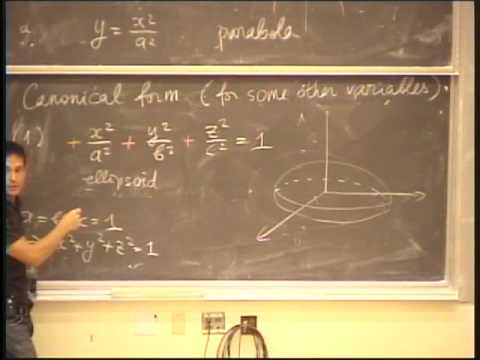 a. y = x²/a² parabola
Canonical form (for some other variables).
(1) + x²/a² + y²/b² + z²/c² = 1
ellipsoid
= 1
x² + y² + z² = 1